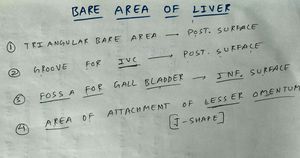 BARE AREA OF LIVER
① TRIANGULAR BARE AREA → POST. SURFACE
② GROOVE FOR IVC → POST. SURFACE
③ FOSSA FOR GALL BLADDER → INF. SURFACE
④ AREA OF ATTACHMENT OF LESSER OMENTUM
[J-SHAPE]